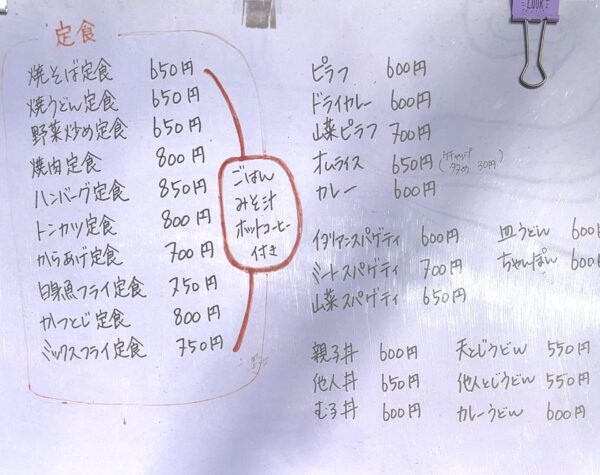 LOOK
定食
焼そば定食 650円
焼うどん定食 650円
野菜炒め定食 650円
焼肉定食 800円
ハンバーグ定食 850円
トンカツ定食 800円
からあげ定食 700円
白身魚フライ定食 750円
かつとじ定食 800円
ミックスフライ定食 750円
ごはん
みそ汁
ホットコーヒー
付き
ピラフ 600円
ドライカレー 600円
山菜ピラフ 700円
オムライス 650円 (ケチャップ
多め 30円)
カレー 600円
イタリアンスパゲティ 600円
ミートスパゲティ 700円
山菜スパゲティ 650円
皿うどん 600円
ちゃんぽん 600
親子丼 600円
他人丼 650円
むろ丼 600円
天とじうどん 550円
他人とじうどん 550円
カレーうどん 600円